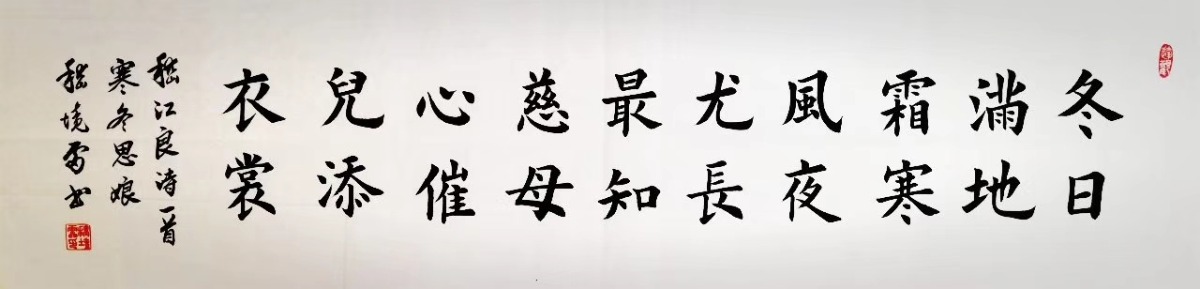 冬日
滿地
霜寒
風夜
尤長
最知
慈母
心催
兒添
衣裳
嵇江良诗一首
寒冬思娘
嵇境雷书